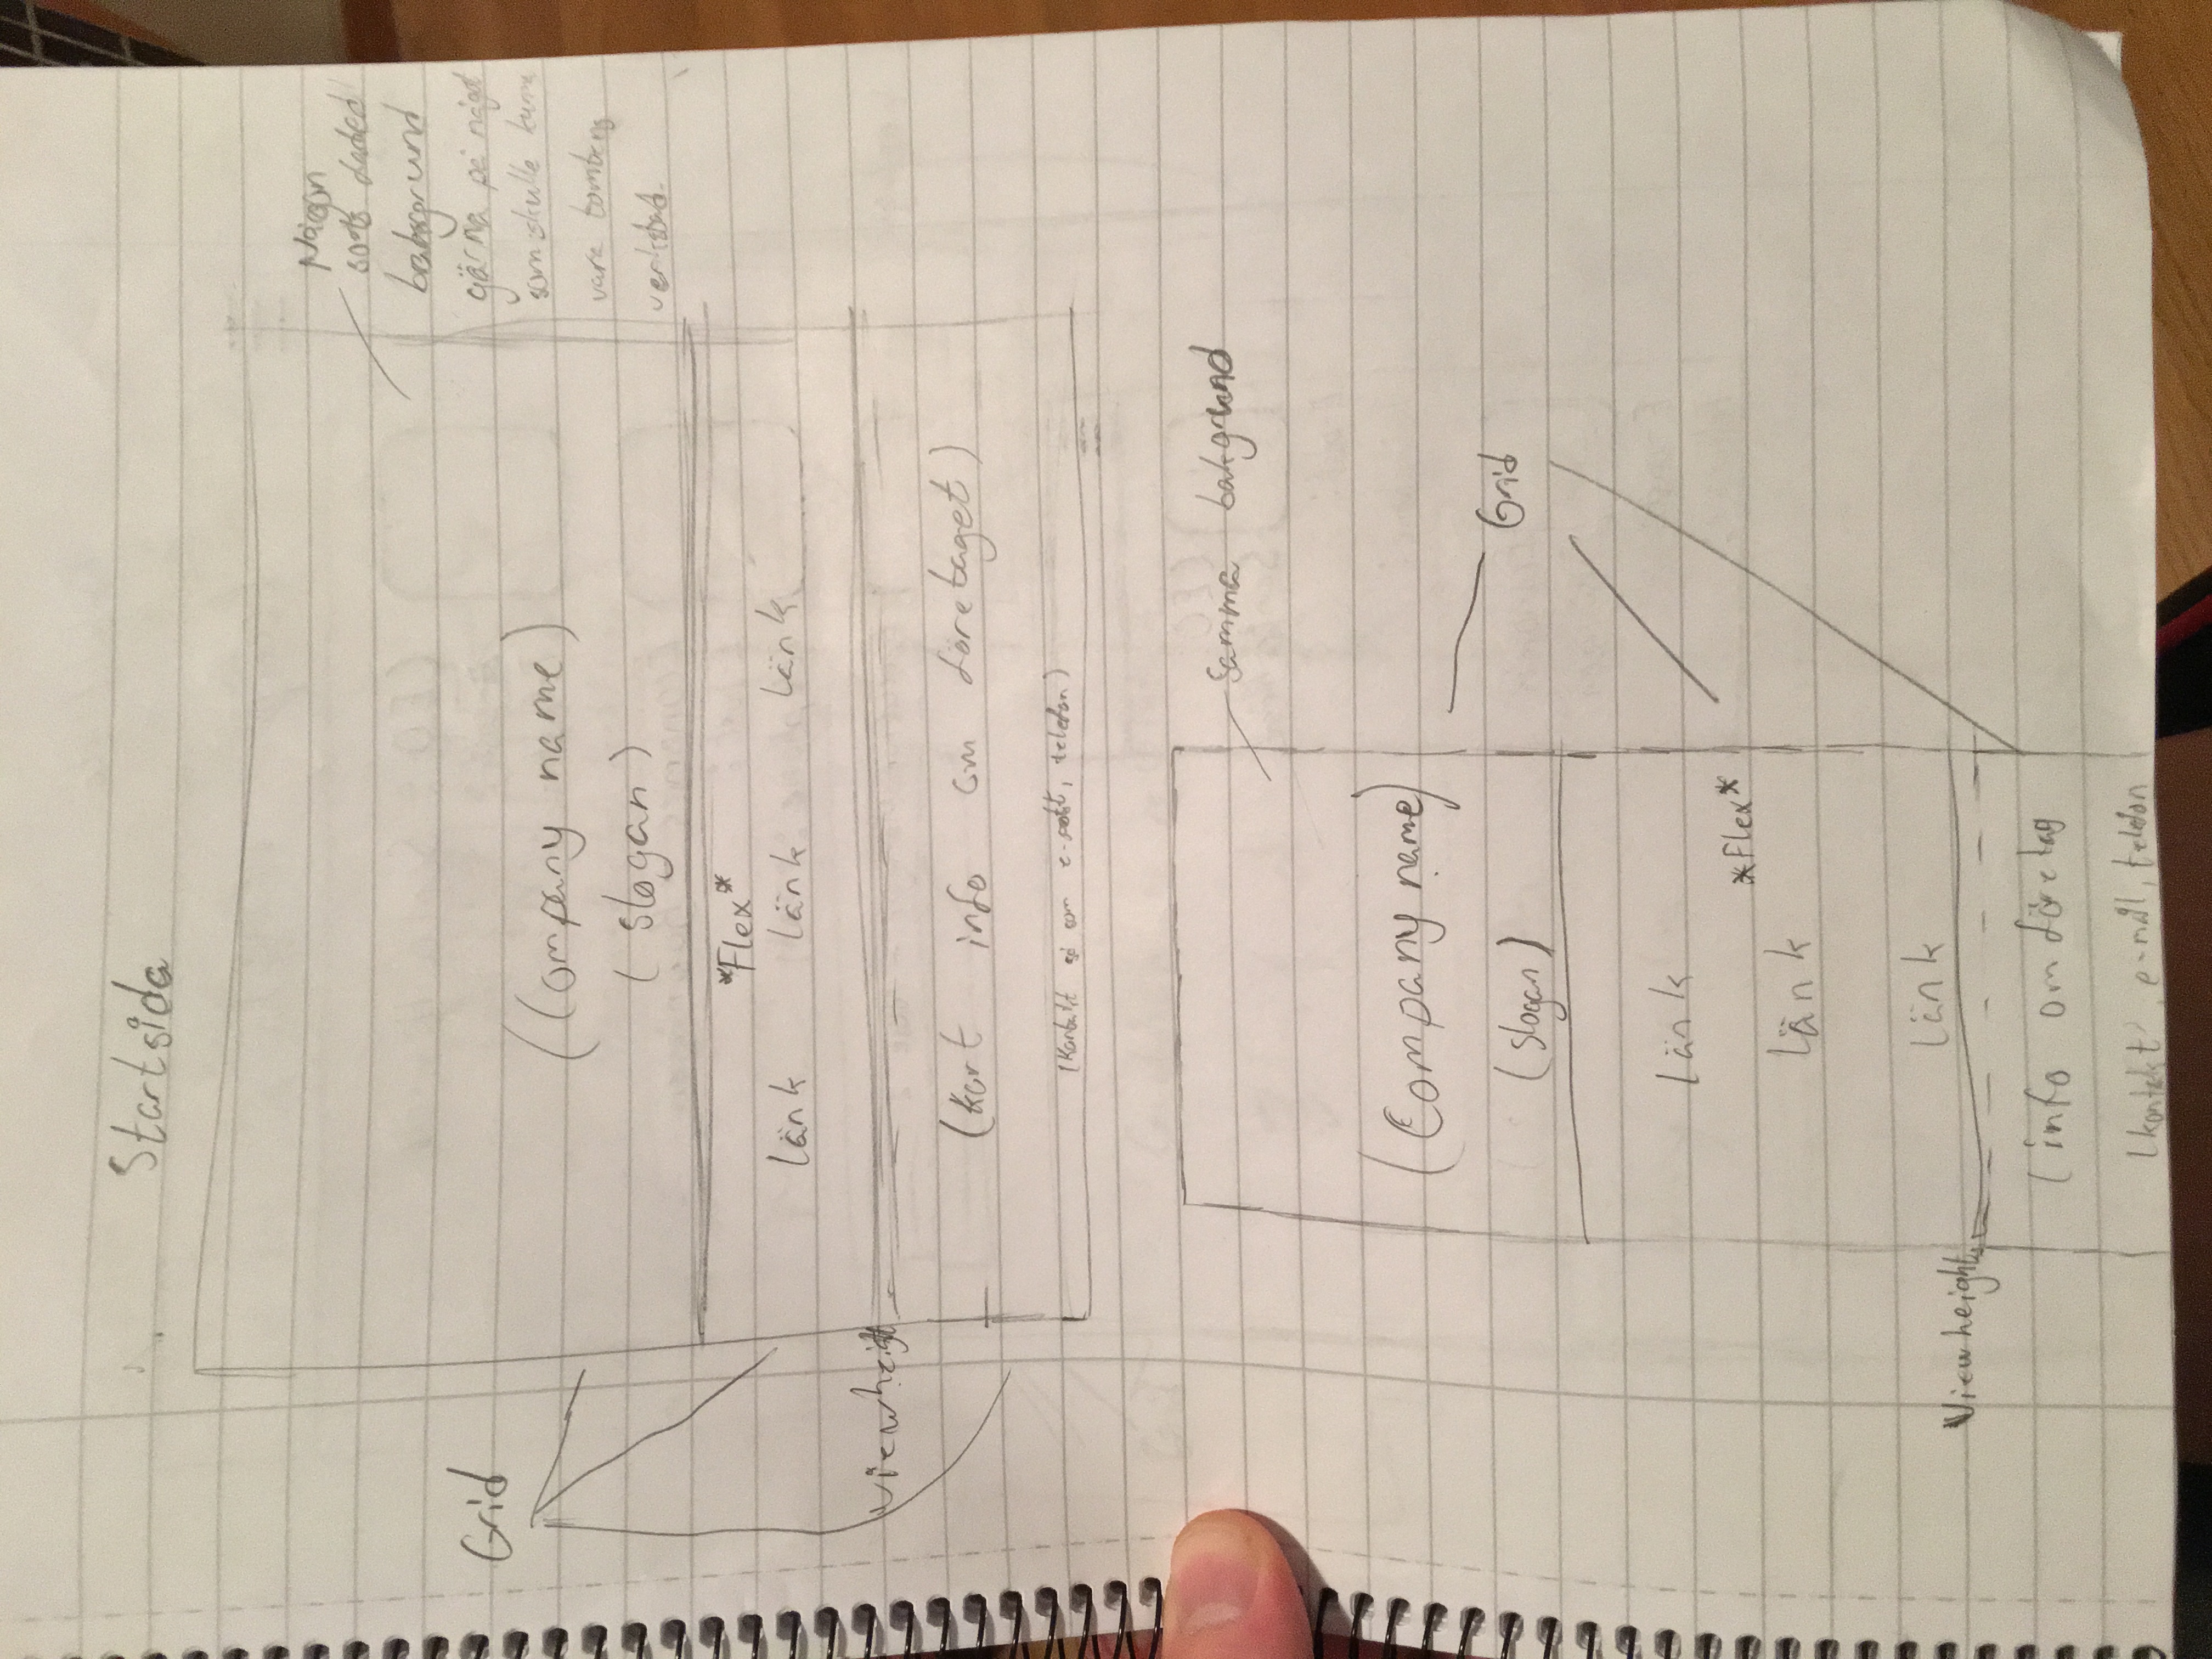 Startsida
Någon
sorts faded
bakgrund
gärna på något
som skulle kunna
vara tomtens
verkstad.
Grid
(Company name)
(slogan)
*Flex*
länk länk länk
viewheight
(Kort info om företaget)
(Kontakt så som e-post, telefon)
samma bakgrund
(Company name)
Grid
(slogan)
länk
*Flex*
länk
länk
Viewheight
(info om företag
(kontakt, e-mail, telefon